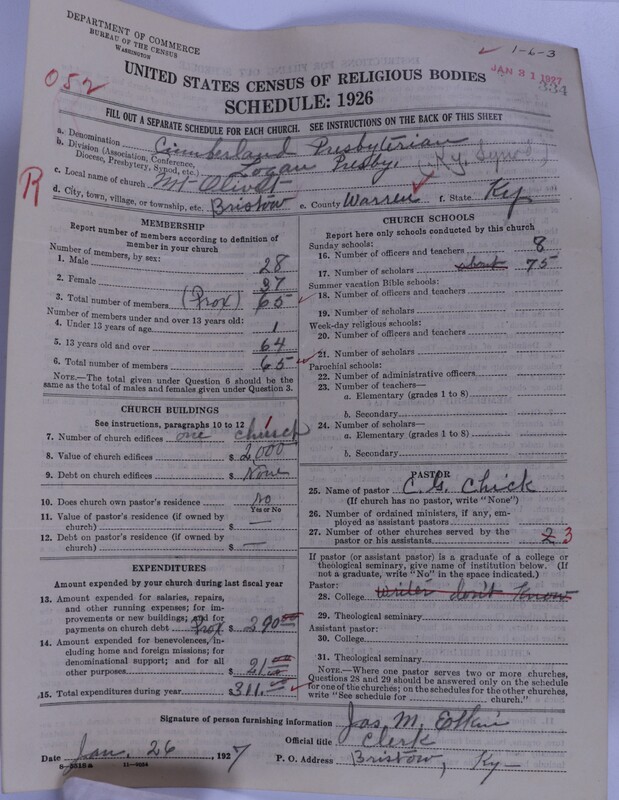 DEPARTMENT OF COMMERCE
BUREAU OF THE CENSUS
WASHINGTON
1-6-3
JAN 31 1927
334
052
UNITED STATES CENSUS OF RELIGIOUS BODIES
SCHEDULE: 1926
FILL OUT A SEPARATE SCHEDULE FOR EACH CHURCH. SEE INSTRUCTIONS ON THE BACK OF THIS SHEET
R
a. Denomination Cumberland Presbyterian
b. Division (Association, Conference, Diocese, Presbytery, Synod, etc.) Logan Presby. (Ky. Synod)
c. Local name of church Mt Olivet
d. City, town, village, or township, etc. Bristow e. County Warren f. State Ky
MEMBERSHIP
Report number of members according to definition of member in your church
Number of members, by sex:
1. Male 28
2. Female 37
3. Total number of members (Prox) 65
Number of members under and over 13 years old:
4. Under 13 years of age 1
5. 13 years old and over 64
6. Total number of members 65
NOTE.—The total given under Question 6 should be the same as the total of males and females given under Question 3.
CHURCH BUILDINGS
See instructions, paragraphs 10 to 12
7. Number of church edifices one church 1
8. Value of church edifices $ 2000
9. Debt on church edifices $ None
10. Does church own pastor's residence No
Yes or No
11. Value of pastor's residence (if owned by church) $ —
12. Debt on pastor's residence (if owned by church) $ —
EXPENDITURES
Amount expended by your church during last fiscal year
13. Amount expended for salaries, repairs, and other running expenses; for improvements or new buildings; and for payments on church debt Prox $ 290.00
14. Amount expended for benevolences, including home and foreign missions; for denominational support; and for all other purposes $ 21.00
15. Total expenditures during year $ 311.00
CHURCH SCHOOLS
Report here only schools conducted by this church
Sunday schools:
16. Number of officers and teachers 8
17. Number of scholars about 75
Summer vacation Bible schools:
18. Number of officers and teachers
19. Number of scholars
Week-day religious schools:
20. Number of officers and teachers
21. Number of scholars
Parochial schools:
22. Number of administrative officers
23. Number of teachers—
a. Elementary (grades 1 to 8)
b. Secondary
24. Number of scholars—
a. Elementary (grades 1 to 8)
b. Secondary
PASTOR
25. Name of pastor C. G. Chick
(If church has no pastor, write "None")
26. Number of ordained ministers, if any, employed as assistant pastors
27. Number of other churches served by the pastor or his assistants 2 3
If pastor (or assistant pastor) is a graduate of a college or theological seminary, give name of institution below. (If not a graduate, write "No" in the space indicated.)
Pastor:
28. College writer don't know
29. Theological seminary
Assistant pastor:
30. College
31. Theological seminary
NOTE.—Where one pastor serves two or more churches, Questions 28 and 29 should be answered only on the schedule for one of the churches; on the schedules for the other churches, write "See schedule for church."
Signature of person furnishing information Jas. M.
Official title Clerk
Date Jan. 26, 1927 P. O. Address Bristow, Ky—
8-3518 a